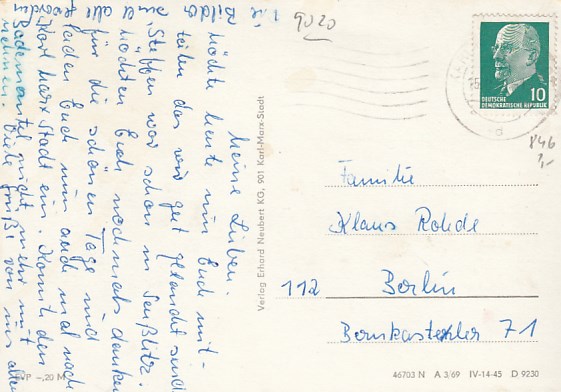 Meine Lieben.
Möchte heute nun Euch mit-
teilen das wir gut gelandet sind
Steffen war schon in Seußlitz.
möchten Euch nochmals danken
für die schönen Tage und
laden Euch nun auch mal nach
Karl Marx Stadt ein. Komit den
Bademantel nicht mehr mit
nehmen. Viele Grüße von uns allen
Bilda
9020
Verlag Erhard Neubert KG, 901 Karl-Marx-Stadt
10
DEUTSCHE
DEMOKRATISCHE REPUBLIK
846
1,-
Familie
Klaus Rohde
112 Berlin
Bernkasteler 71
EVP –,20 M
46703 N A 3/69 IV-14-45 D 9230